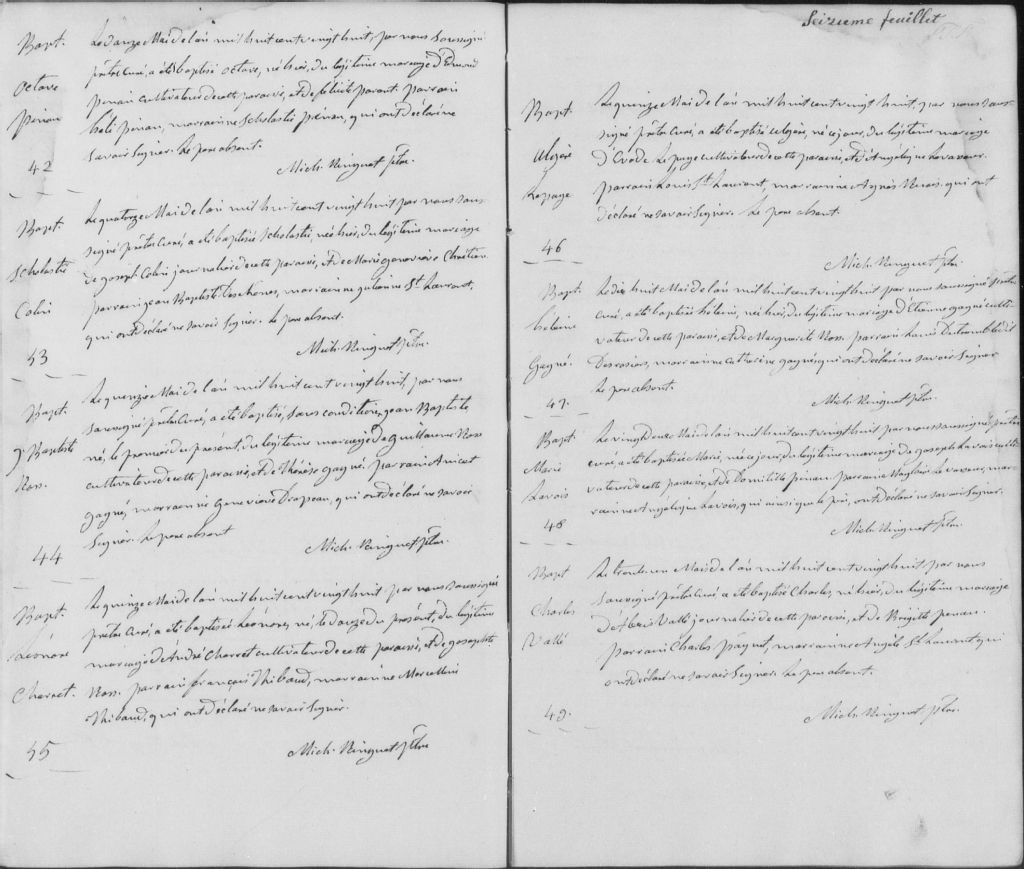 Bapt.
Octave
Pinau
42
Le douze Mai de l'an mil huit cent vingt huit, par nous soussigné
prêtre Curé, a été baptisé Octave, né hier, du légitime mariage d'Edmond
Pinau cultivateur de cette paroisse, et de félicité parant. parrain
héli pinau, marraine Scholastie pinau, qui ont déclaré ne
savoir signer. Le père absent.
Mich. Ringuet ptre.
Bapt.
Scholastie
Colin
43
Le quatorze Mai de l'an mil huit cent vingt huit par nous sous-
signé prêtre Curé, a été baptisée Scholastie, née hier, du légitime mariage
de joseph Colin journalier de cette paroisse, et de Marie genevieve Chrétien
parrain jean Baptiste Deschenes, marraine julienne St. Laurent,
qui ont déclaré ne savoir signer. Le père absent.
Mich. Ringuet ptre.
Bapt.
J. Baptiste
Ross.
44
Le quinze Mai de l'an mil huit cent vingt huit, par nous
soussigné prêtre Curé, a été baptisé, sous condition, jean Baptiste,
né, le premier du présent, du légitime mariage de guillaume Ross
cultivateur de cette paroisse, et de Thérèse gagné. parrain Anicet
gagné, marraine Genevieve Drapeau, qui ont déclaré ne savoir
signer. Le père absent
Mich. Ringuet ptre.
Bapt.
Léonore
Charet.
45
Le quinze Mai de l'an mil huit cent vingt huit par nous soussigné
prêtre Curé, a été baptisée Léonore, née, le douze du présent, du légitime
mariage de André Charret cultivateur de cette paroisse, et de josephte
Ross. parrain françois Thibaud, marraine Marcelline
Thibaud, qui ont déclaré ne savoir signer.
Mich. Ringuet ptre
Seizieme feuillet
Bapt.
Ulgère
Lepage
46
Le quinze Mai de l'an mil huit cent vingt huit, par nous sous-
signé prêtre Curé, a été baptisé ulgère, né ce jour, du légitime mariage
d'Evode Lepage cultivateur de cette paroisse, et d'Angélique Lavasseur.
parrain Louis St. Laurent, marraine Agnès Ruais. qui ont
déclaré ne savoir signer. Le père absent.
Mich. Ringuet ptre.
Bapt.
hélène
Gagné.
47.
Le dix huit Mai de l'an mil huit cent vingt huit par nous soussigné prêtre
curé, a été baptisée hélène, née hier, du légitime mariage d'Etienne gagné culti-
vateur de cette paroisse, et de Marguerite Ross. parrain Louis Dutremble dit
Desrosiers, marraine Catherine gagné, qui ont déclaré ne savoir signer
Le père absent.
Mich. Ringuet ptre.
Bapt.
Marie
Lavois
48
Le vingt deux Mai de l'an mil huit cent vingt huit par nous soussigné prêtre
curé, a été baptisée Marie, née ce jour, du légitime mariage de joseph Lavois culti-
vateur de cette paroisse, et de Domitille pinau. parrain Magloire Levasseur, mar-
raine Angélique Lavois, qui ainsi que le père, ont déclaré ne savoir signer.
Mich. Ringuet ptre.
Bapt
Charles
Vallé
49.
Le trente un Mai de l'an mil huit cent vingt huit, par nous
soussigné prêtre Curé, a été baptisé Charles, né hier, du légitime mariage
de Vallé journalier de cette paroisse, et de Brigitte pinau.
parrain Charles pâquet, marraine Angèle St. Laurent, qui
ont déclaré ne savoir signer. Le père absent.
Mich. Ringuet ptre.